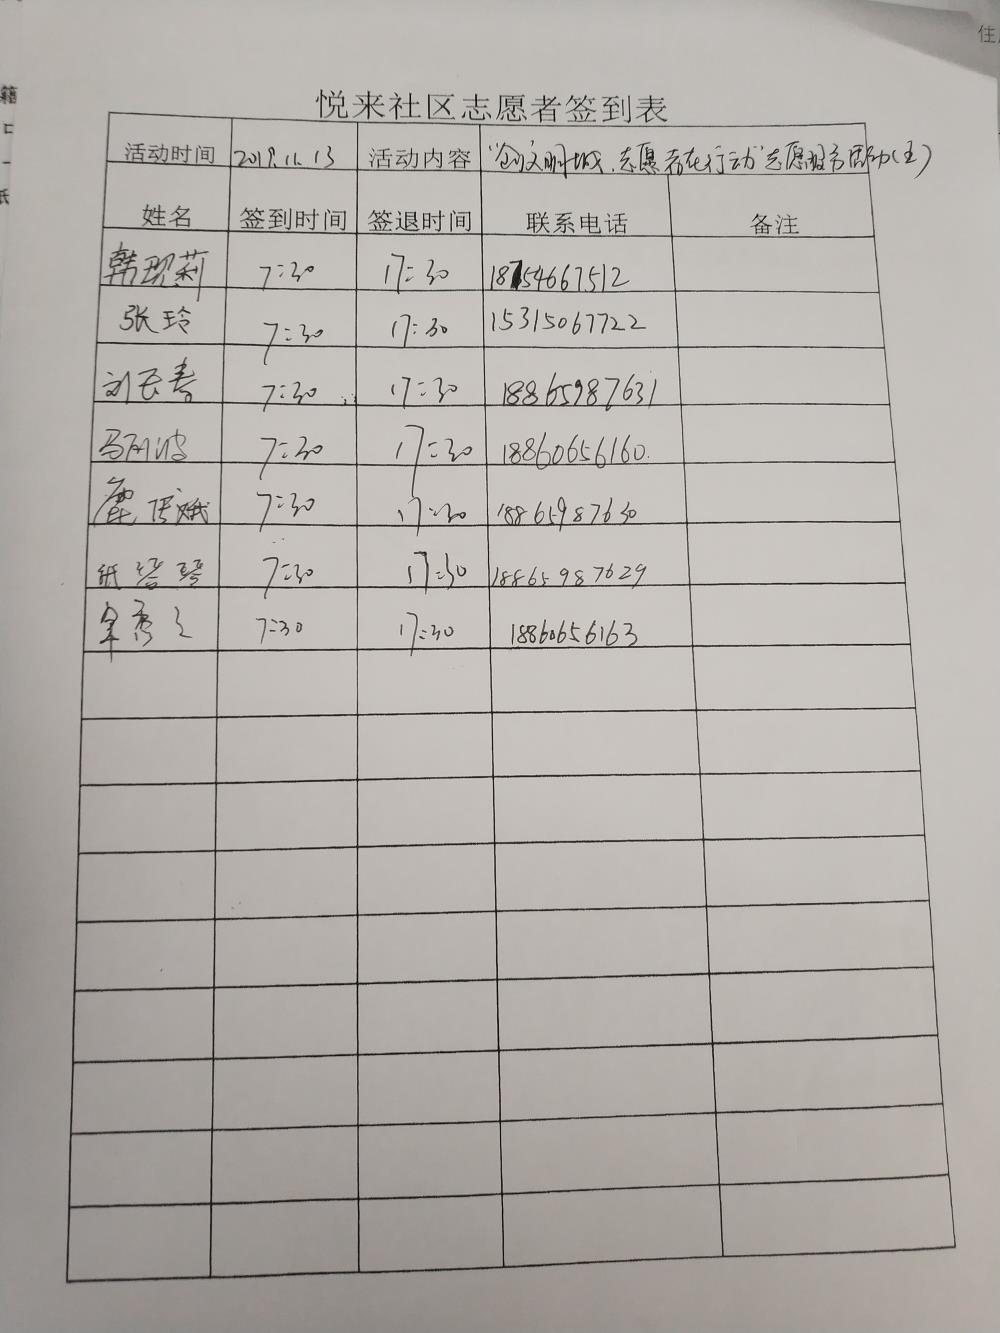 悦来社区志愿者签到表
活动时间 2019.11.13 活动内容 "创文明城,志愿者在行动"志愿服务活动(五)
姓名 签到时间 签退时间 联系电话 备注
韩 莉 7:30 17:30 18754667512
张玲 7:30 17:30 15315067722
刘长春 7:30 17:30 18865987631
马 波 7:30 17:30 18860656160
7:30 17:30 18865987630
纸 7:30 17:30 18865987629
牟秀 7:30 17:30 18860656163
籍
口
一
纸
住